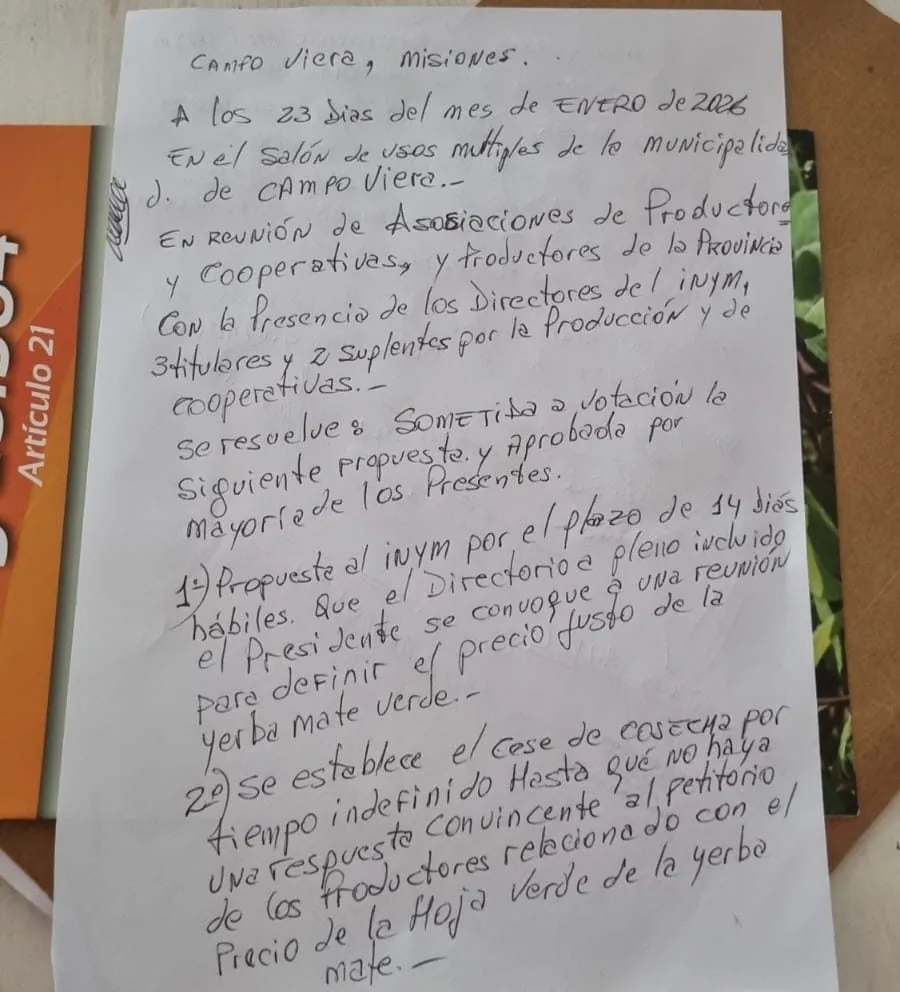 CAMPO Viera, misiones.
A los 23 Dias del mes de ENERO de 2026
EN el Salón de usos multiples de la municipalida
d. de CAMPO Viera.-
EN REUNIÓN de Asosiaciones de Productore
y Cooperativas, y Productores de la Provincia
CON la Presencia de los Directores del iNYM,
3 titulares y 2 suplentes por la Producción y de
cooperativas.-
se resuelve: SOMETIDA a votación la
siguiente propuesta. y Aprobada por
mayoria de los Presentes.
1º) Propuesta al iNYM por el plazo de 14 dias
hábiles. Que el Directorio a pleno incluido
el Presidente se convoque a una reunión
para definir el precio justo de la
yerba mate verde.-
2º) se establece el cese de COSECHA por
tiempo indefinido Hasta qué NO haya
una respuesta convincente al petitorio
de los Productores relacionado con el
Precio de la Hoja Verde de la yerba
mate.-
Artículo 21